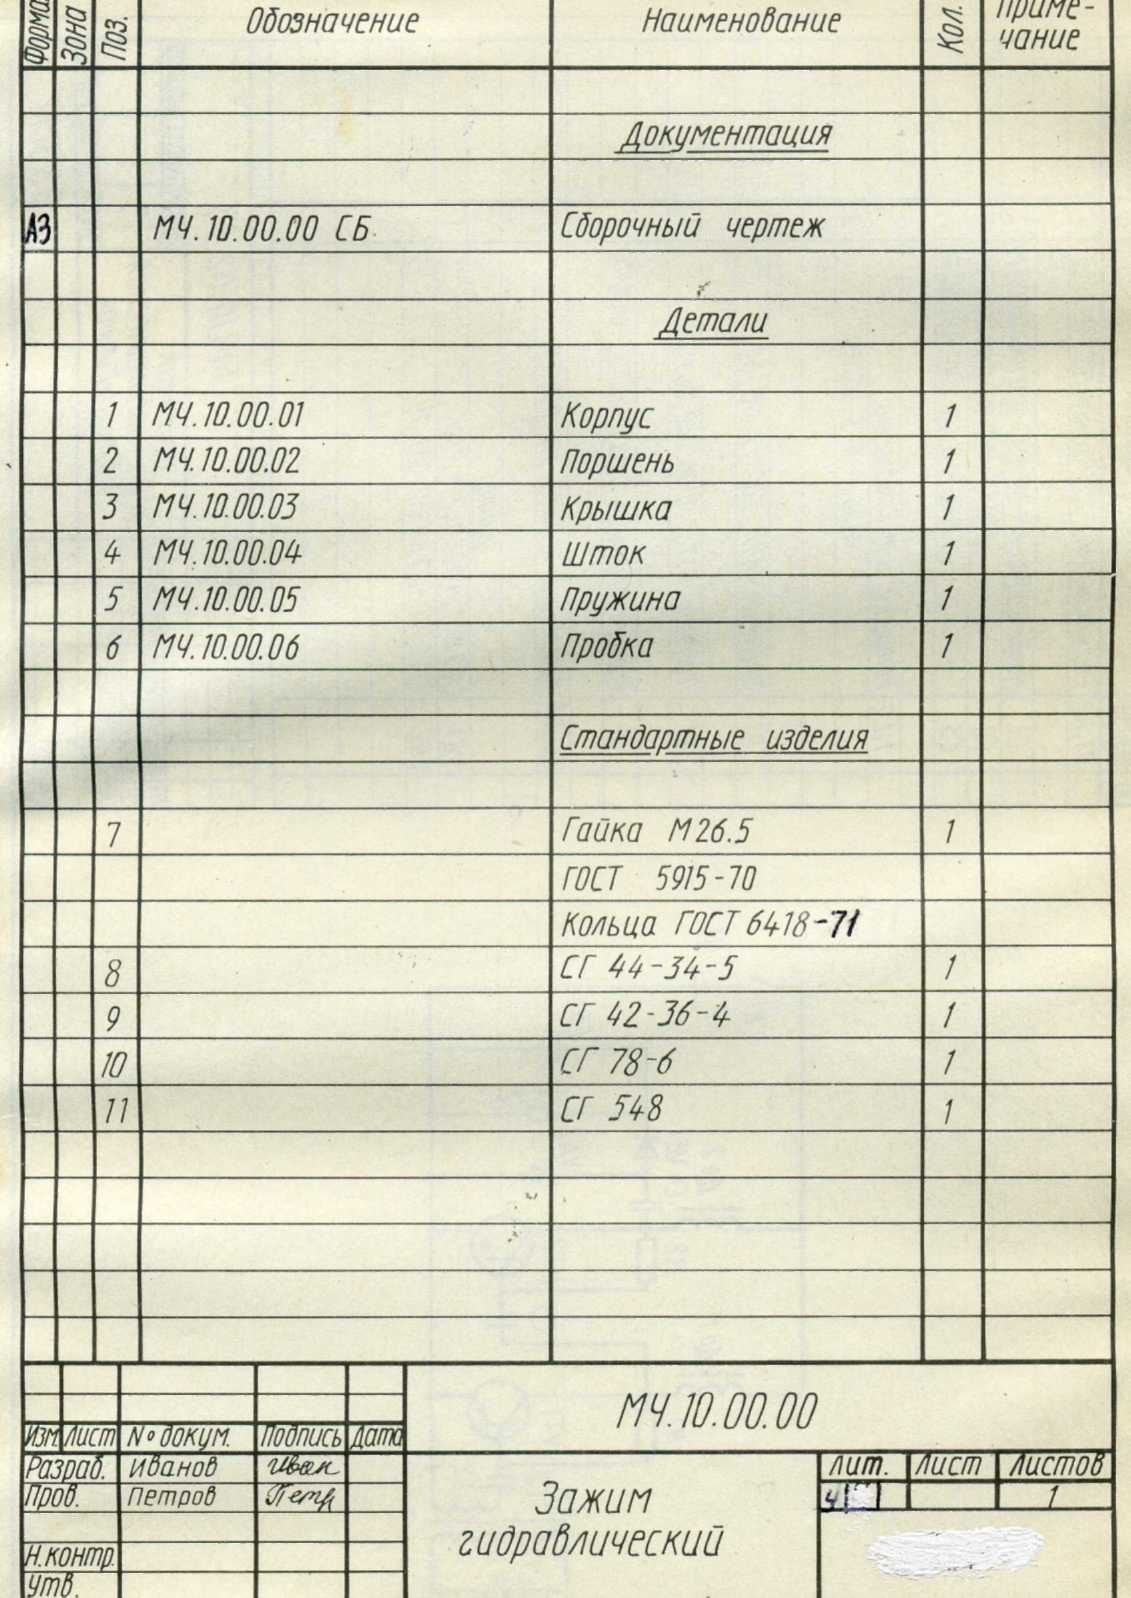 Формат Зона Поз. Обозначение Наименование Кол. Приме-
чание
Документация
А3 МЧ.10.00.00 СБ Сборочный чертеж
Детали
1 МЧ.10.00.01 Корпус 1
2 МЧ.10.00.02 Поршень 1
3 МЧ.10.00.03 Крышка 1
4 МЧ.10.00.04 Шток 1
5 МЧ.10.00.05 Пружина 1
6 МЧ.10.00.06 Пробка 1
Стандартные изделия
7 Гайка М26.5 1
ГОСТ 5915-70
Кольца ГОСТ 6418-71
8 СГ 44-34-5 1
9 СГ 42-36-4 1
10 СГ 78-6 1
11 СГ 548 1
МЧ.10.00.00
Изм. Лист № докум. Подпись Дата
Разраб. Иванов Иван
Пров. Петров Петр
Н.контр.
Утв.
Зажим
гидравлический
Лит. Лист Листов
у 1